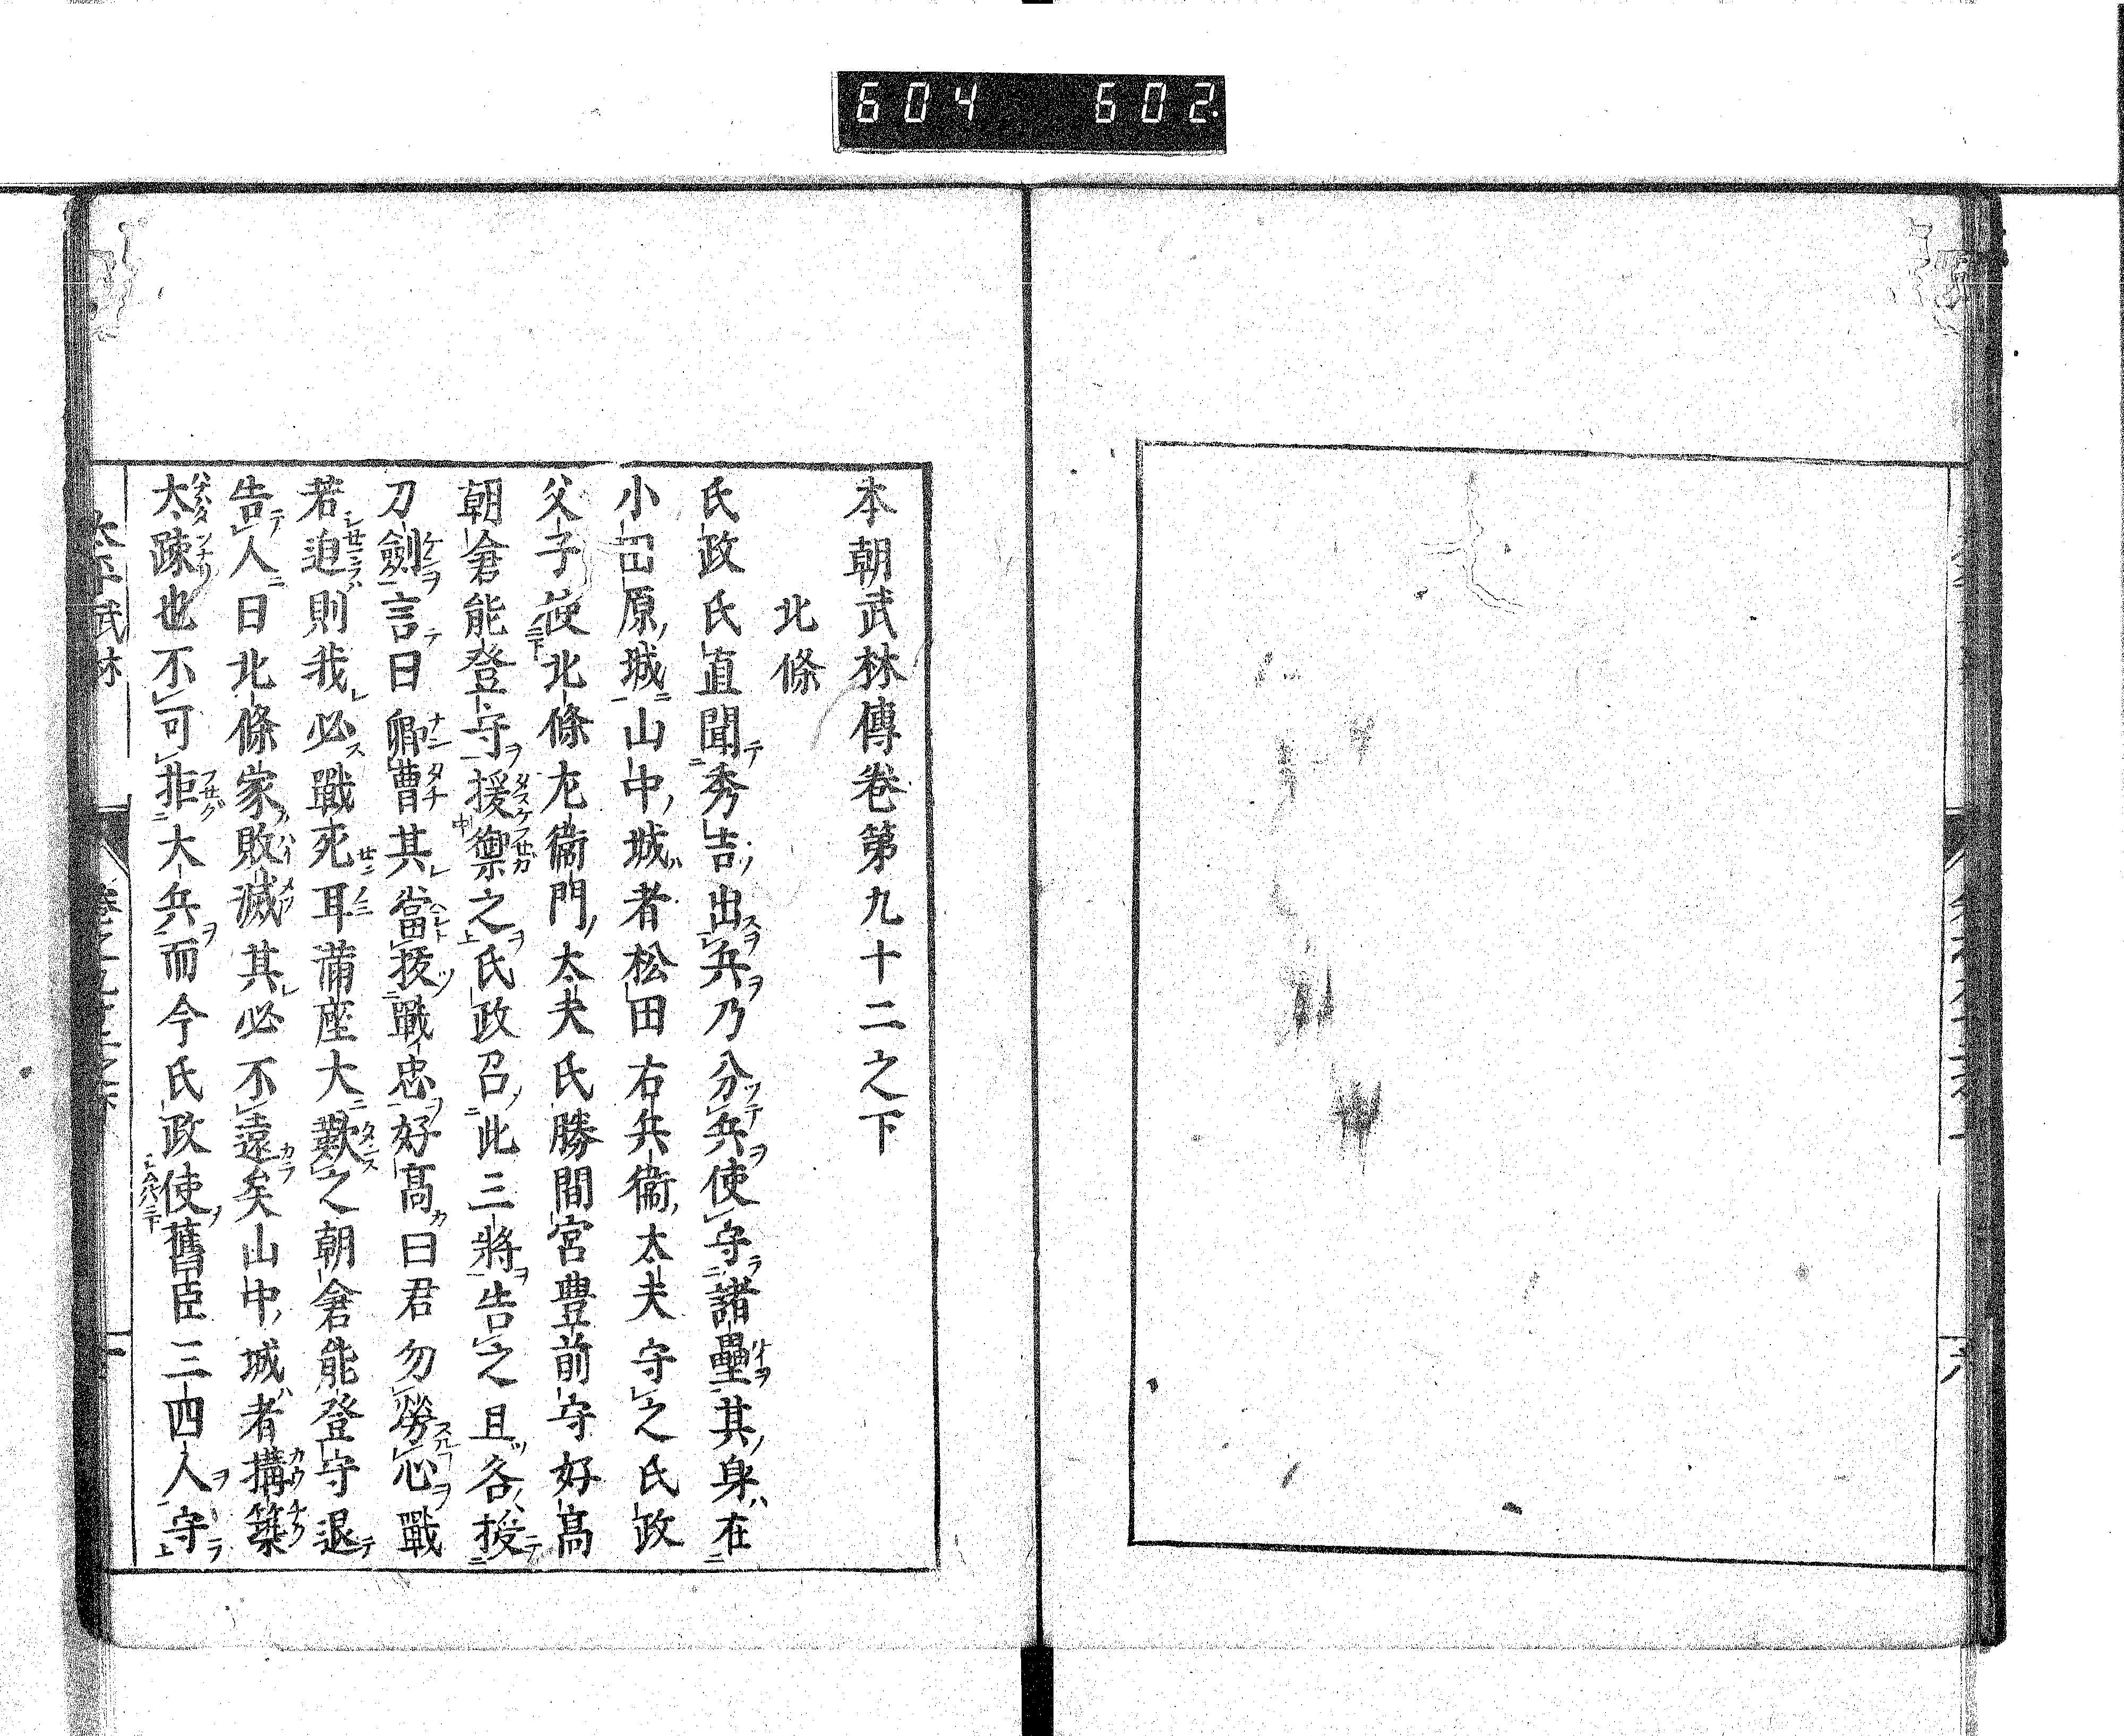 604 602
本朝武林傳卷第九十二之下
北條
氏政氏直聞秀吉出兵乃分兵使守諸壘其身在
小田原城山中城者松田右兵衞太夫守之氏政
父子使北條左衞門太夫氏勝間宮豊前守好高
朝倉能登守援禦之氏政召此三將告之且各授
刀劍言曰卿曹其當拔戰忠好髙曰君勿勞心戰
若迫則我必戰死耳蒲座大歎之朝倉能登守退
告人曰北條家敗滅其必不遠矣山中城者搆築
太疎也不可拒大兵而今氏政使舊臣三四人守